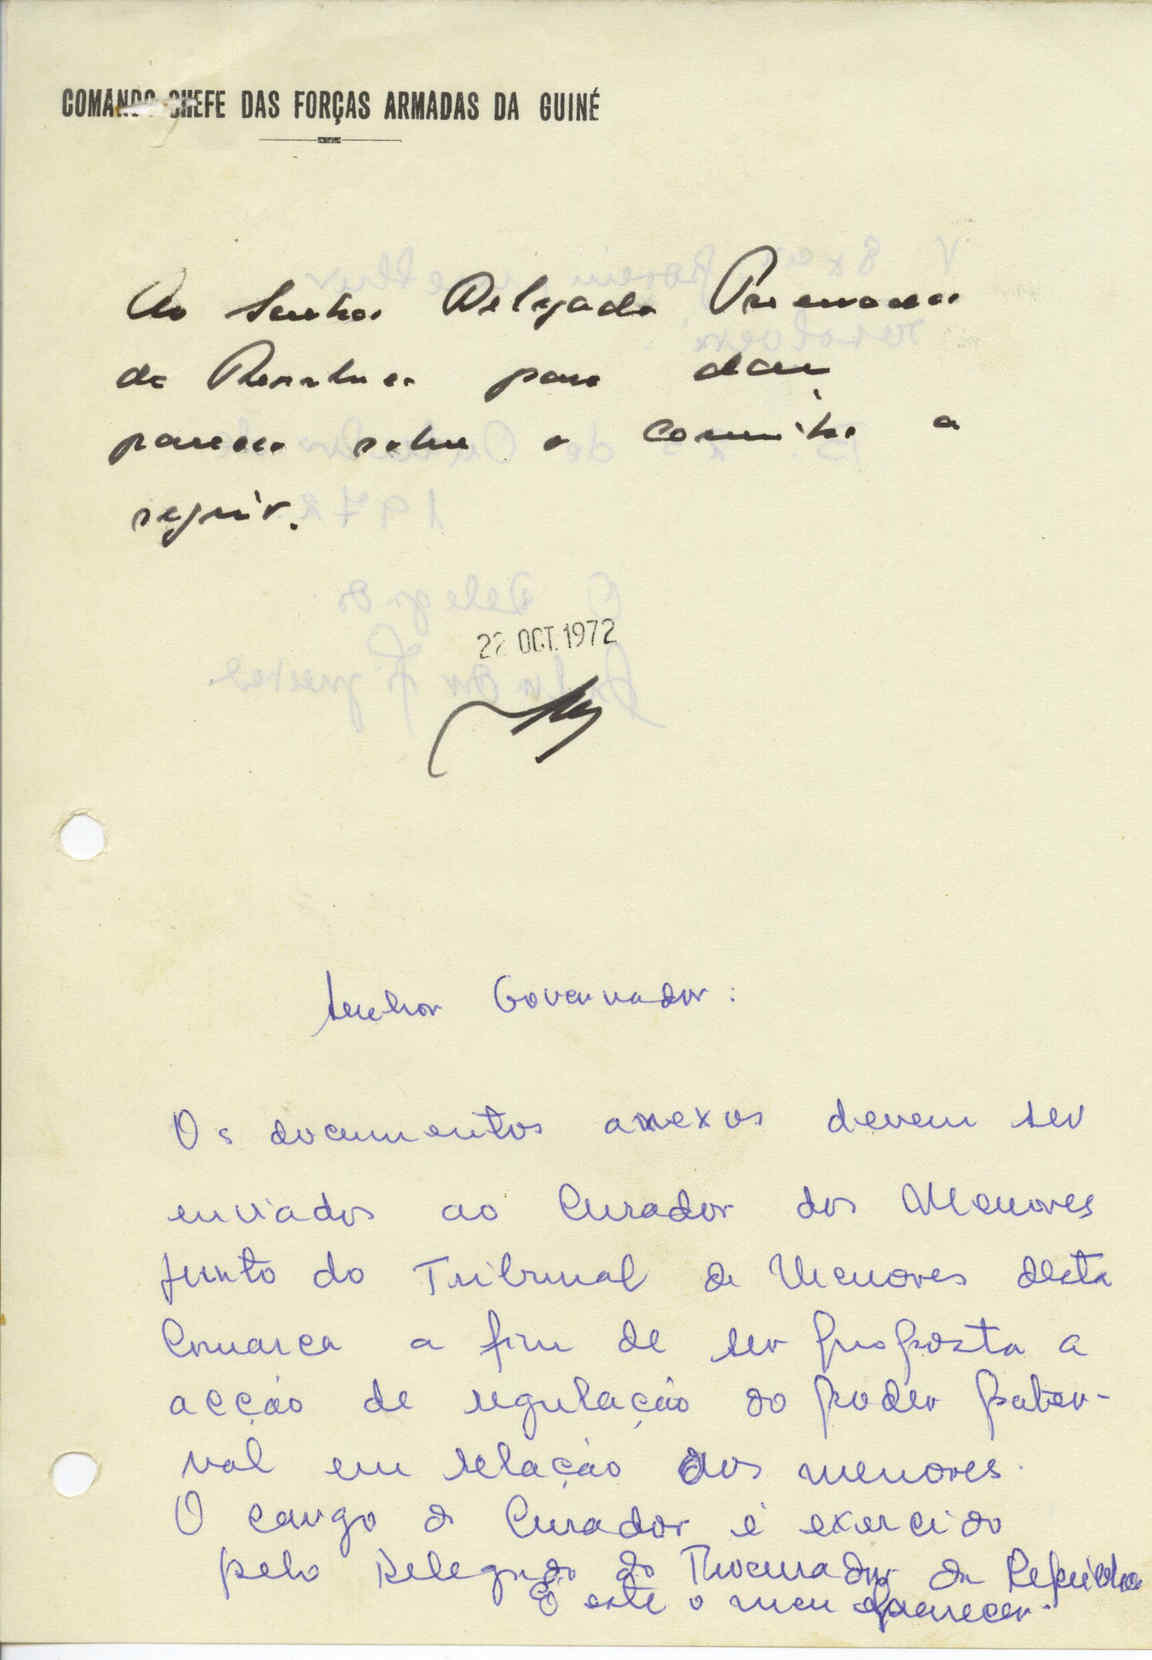 COMANDO-CHEFE DAS FORÇAS ARMADAS DA GUINÉ
Ao Senhor Delegado Procurador
da República para dar
parecer sobre o caminho a
seguir.
22 OCT. 1972
Senhor Governador:
Os documentos anexos devem ser
enviados ao Curador dos Menores
junto do Tribunal de Menores desta
Comarca a fim de ser proposta a
acção de regulação do poder pater-
nal em relação aos menores.
O cargo de Curador é exercido
pelo Delegado do Procurador da República
É este o meu parecer.